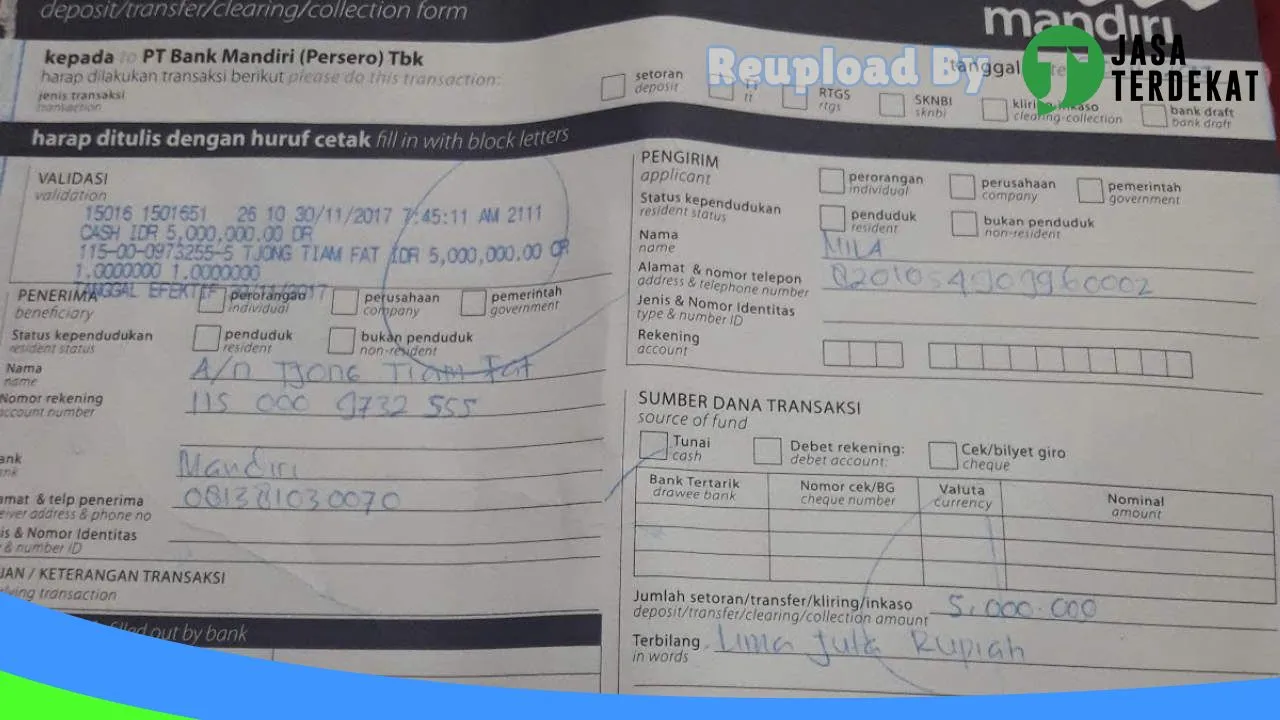 deposit/transfer/clearing/collection form
mandiri
kepada to PT Bank Mandiri (Persero) Tbk
harap dilakukan transaksi berikut please do this transaction:
jenis transaksi
transaction
setoran
deposit
TT
tt
RTGS
rtgs
SKNBI
sknbi
kliring-inkaso
clearing-collection
bank draft
bank draft
tanggal
Reupload By
JASA
TERDEKAT
harap ditulis dengan huruf cetak fill in with block letters
VALIDASI
validation
15016 1501651 26 10 30/11/2017 7:45:11 AM 2111
CASH IDR 5,000,000.00 DR
115-00-0973255-5 TJONG TIAM FAT IDR 5,000,000.00 CR
1.0000000 1.0000000
TANGGAL EFEKTIF 30/11/2017
PENERIMA
beneficiary
perorangan
individual
perusahaan
company
pemerintah
government
Status kependudukan
resident status
penduduk
resident
bukan penduduk
non-resident
Nama
name
A/n Tjong Tiam Fat
Nomor rekening
account number
115 000 9732 555
ank
nk
Mandiri
amat & telp penerima
eiver address & phone no
081381030070
is & Nomor Identitas
& number ID
UAN / KETERANGAN TRANSAKSI
lying transaction
filled out by bank
PENGIRIM
applicant
perorangan
individual
perusahaan
company
pemerintah
government
Status kependudukan
resident status
penduduk
resident
bukan penduduk
non-resident
Nama
name
MILA
Alamat & nomor telepon
address & telephone number
Jenis & Nomor Identitas
type & number ID
Rekening
account
SUMBER DANA TRANSAKSI
source of fund
Tunai
cash
Debet rekening:
debet account:
Cek/bilyet giro
cheque
Bank Tertarik
drawee bank
Nomor cek/BG
cheque number
Valuta
currency
Nominal
amount
Jumlah setoran/transfer/kliring/inkaso
deposit/transfer/clearing/collection amount
5.000.000
Terbilang
in words
Lima Juta Rupiah